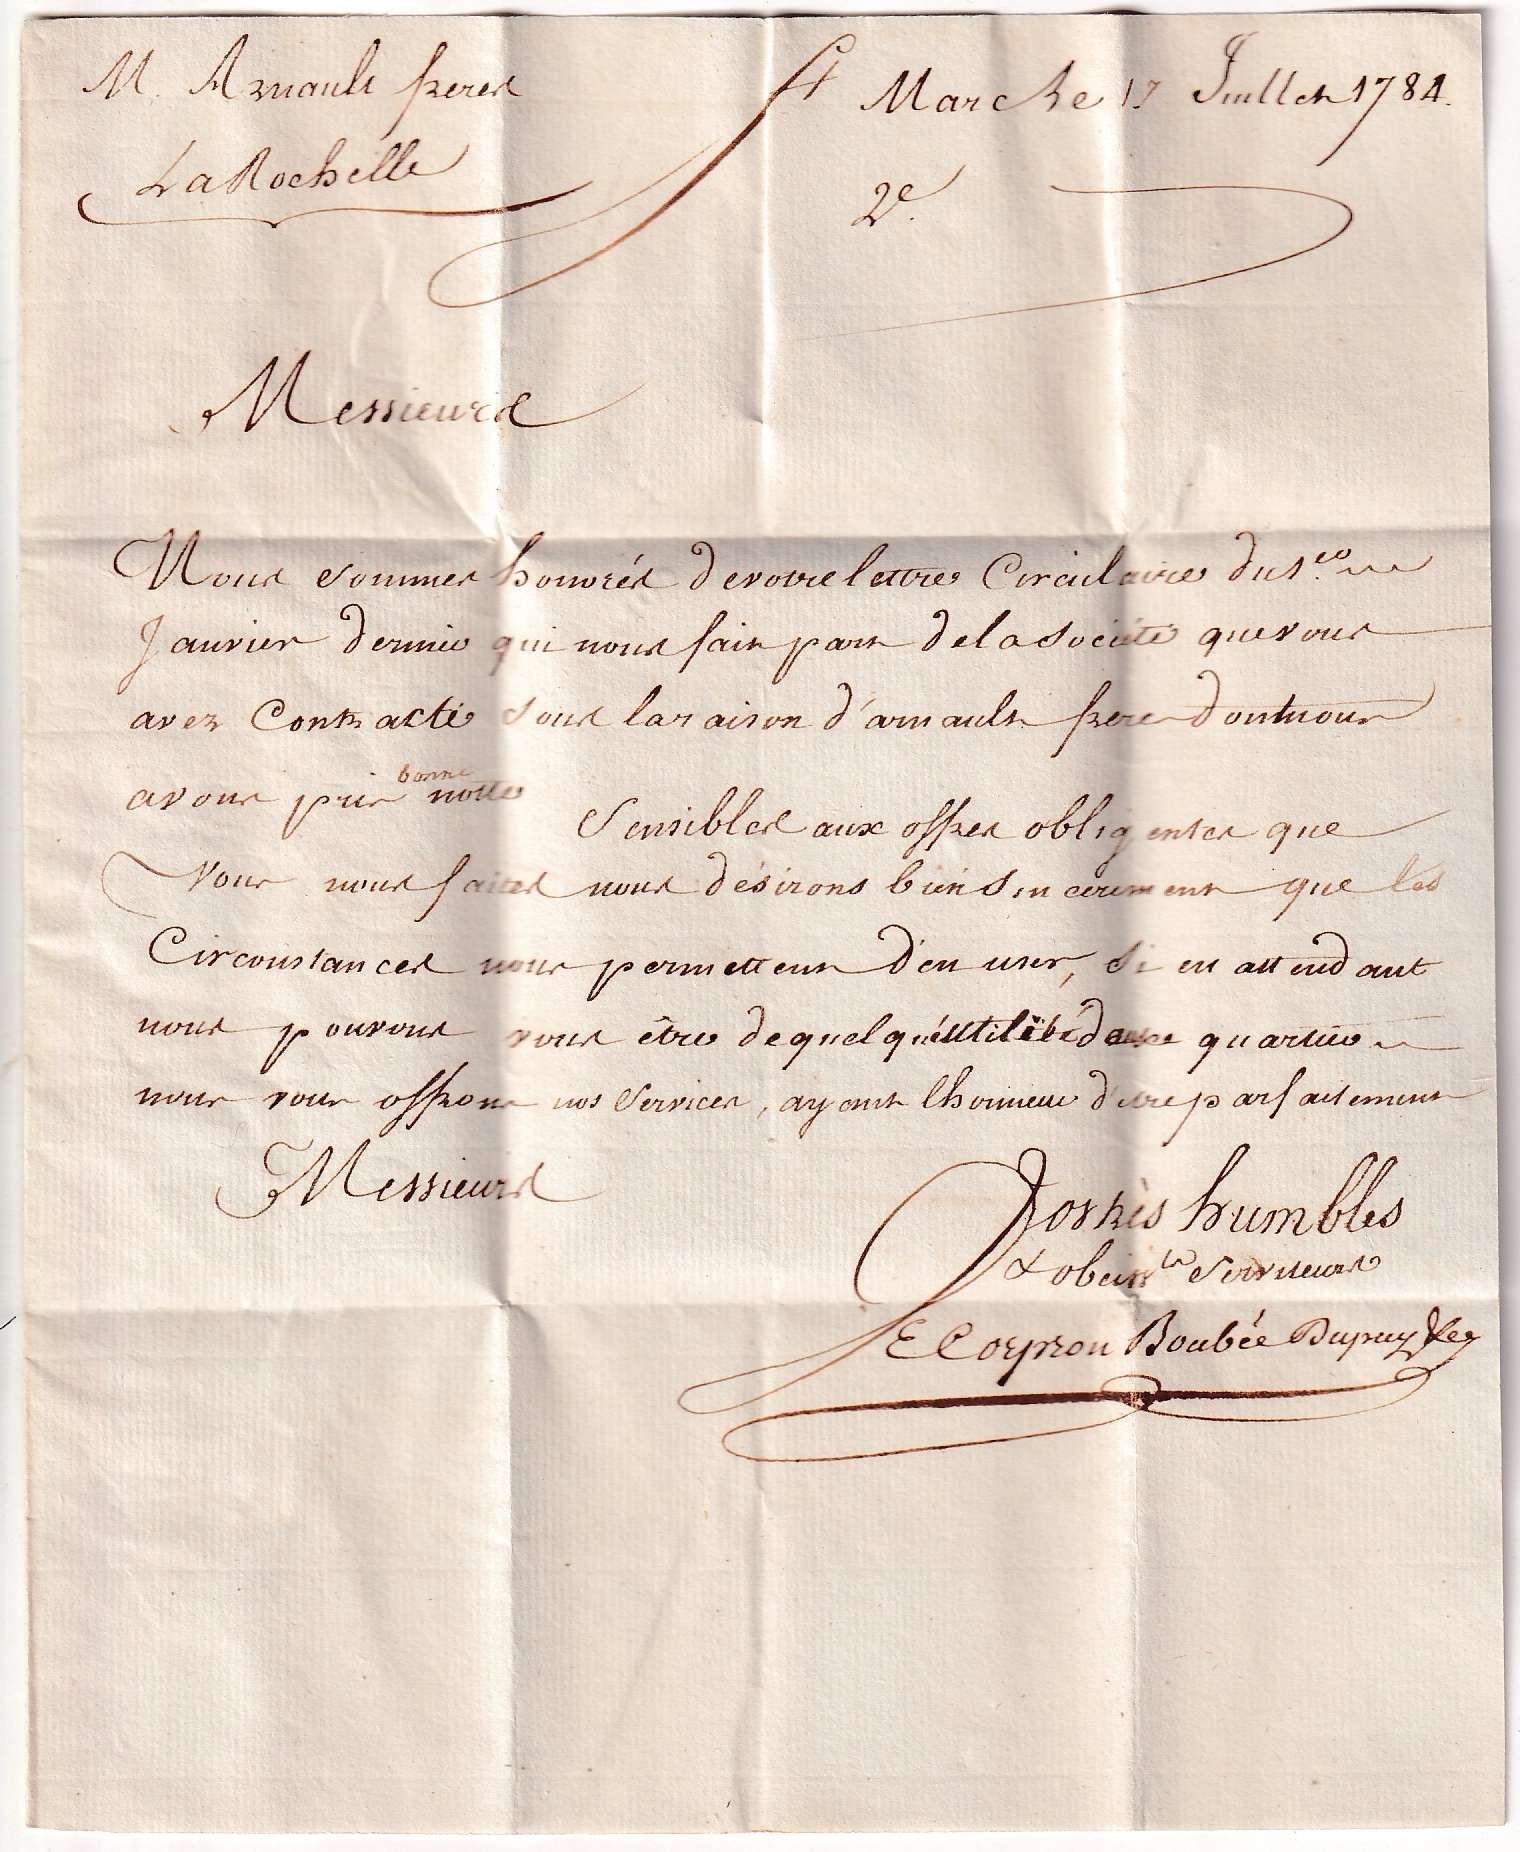 M. Arnault freres
St Marc le 17 Juillet 1784.
La Rochelle
2e.
Messieurs
Nous sommes honorés de votre lettre Circulaire du 1.er
Janvier dernier qui nous fait part de la Société que vous
avez Contracté Sous la raison d'arnault frere dont nous
avons pris bonne notte
Sensibles aux offres obligentes que
Vous nous faites nous désirons bien Sincerement que les
Circonstances nous permettent d'en user, Si en attendant
nous pouvons vous être de quelqu'utilité dans ce quartier
nous vous offrons nos Services, ayant lhonneur d'etre parfaitement
Messieurs
Vos très humbles
& obeissts Serviteurs
E Corpron Boubée Dupuy &ce